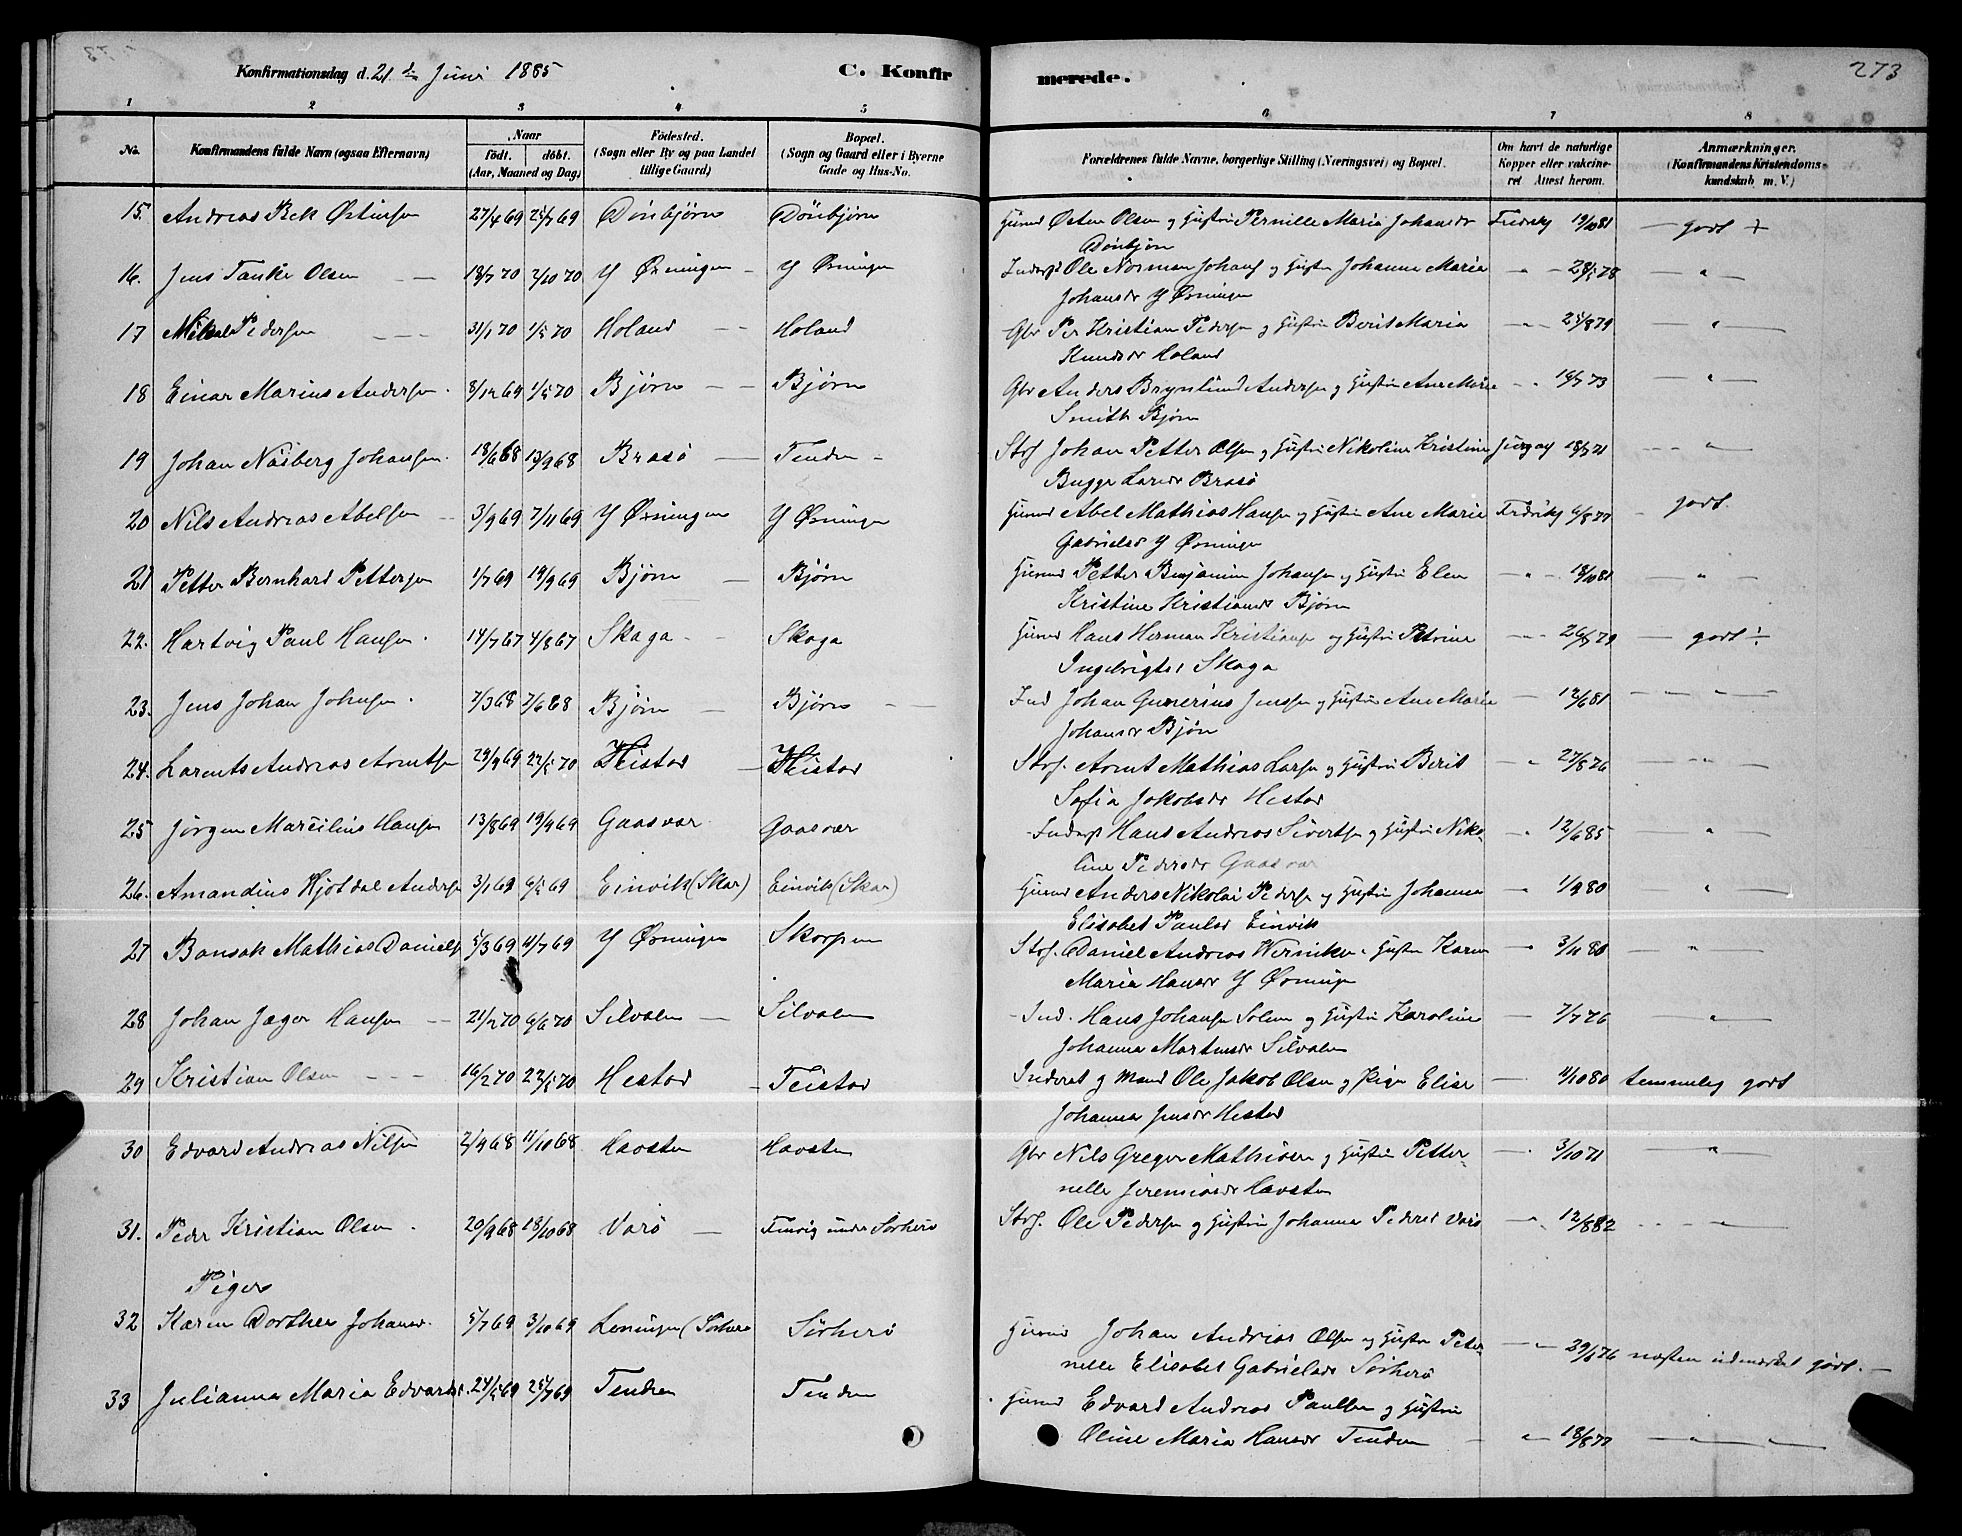 Konfirmationsdag d. 21de Juni 1885 C. Konfirmerede. 273
1 2 3 4 5 6 7 8
No. Konfirmandens fulde Navn (ogsaa Efternavn) Naar födt. döbt. (Aar, Maaned og Dag) Födested. (Sogn eller By og paa Landet tillige Gaard) Bopæl. (Sogn og Gaard eller i Byerne Gade og Hus-No. Forældrenes fulde Navne, borgerlige Stilling (Næringsvei) og Bopæl. Om havt de naturlige Kopper eller vakcineret. Attest herom. Anmærkninger. (Konfirmandens Kristendomskundskab m. V.)
15. Andreas Bek Østensen 27/4 69 25/7 69 Dönbjörn Dönbjörn Østen Olsen og Hustru Pernille Maria Johansdr 19/10 81 godt +
Dönbjörn
16. Jens Tanke Olsen 18/7 70 2/10 70 Y Øxningen Y Øxningen Inderst Ole Norman Johans og Hustru Johanna Maria " 28/5 78 "
Johansdr Y Øxningen
17 Mikal Pedersen 31/1 70 1/5 70 Holand Holand Gbr Per Kristian Pedersen og Hustru Berit Maria " 25/8 79 "
Knudsdr Holand
18 Einar Marius Andersen. 8/12 69 1/5 70 Bjørn Bjørn Gbr Anders Brynlund Andersen og Hustru Ane Marie " 16/7 73 "
Smith Bjørn
19 Johan Näsberg Johansen. 18/6 68 13/9 68 Brasö Tendra Strf Johan Petter Olsen og Hustru Nikoline Kristine 18/7 71 "
Bugge Larsdr Brasö
20 Nils Andreas Abelsen 3/9 69 7/11 69 Y Øxningen Y Øxningen Abel Mathias Hansen og Hustru Ane Maria 6/8 77 godt.
Gabrielsd Y Øxningen
21 Petter Bernhard Pettersen 1/7 69 19/9 69 Bjørn Bjørn Petter Benjamin Johansen og Hustru Elen " 18/10 81 "
Kristine Kristiansd Bjørn
22. Hartvig Paul Hansen. 14/7 67 4/8 67 Skaga Skaga Hans Herman Kristiansen og Hustru Petrine " 26/7 79 godt ÷
Ingebrigtsd Skaga
23. Jens Johan Johnsen. 7/3 68 7/6 68 Bjørn Bjørn Ind Johan Gunerius Jenssen og Hustru Ane Marie 12/6 81 "
Johansdr Bjørn
24. Larents Andreas Arntsen 29/9 69 22/5 70 Heistad Heistad Strf. Arnt Mathias Larsen og Hustru Berit " 27/8 76 "
Sofia Jakobsdr Hestad
25 Jørgen Marcilius Hansen 13/8 69 19/9 69 Gaasvar Gaasvær Inderst Hans Andreas Sivertsen og Hustru Niko- " 12/6 85 "
line Pedersdr Gaasvær
26. Amandius Hjotdal Anders 3/1 69 6/5 69 Einvik (Skar) Einvik (Skar) Anders Nikolai Pedersen og Hustru Johanna " 1/9 80 "
Elisabet Paulsd Einvik
27 Bonsak Mathias Daniels 5/3 69 11/7 69 Y Øxningen Skorpen Strf. Daniel Andreas Werniken Hustru Karen " 3/11 80 "
Maria Hansdr Y Øxningen
28 Johan Jæger Hansen 21/2 70 6/6 70 Silvalen Silvalen Ind. Hans Johansen Solem og Hustru Karoline 7/7 76 "
Johanna Martinsdr Silvalen
29 Kristian Olsen 16/2 70 22/5 70 Hestad Teistad Inderst g Mand Ole Jakob Olsen og Pige Elise 11/10 80 temmelig godt
Johanna Jensdr Hestad
30 Edvard Andreas Nilsen 2/9 68 11/10 68 Havsten Havsten Gbr Nils Greger Mathisen og Hustru Petter- 3/10 71 "
nelle Jeremiasdr Havsten
31. Peder Kristian Olsen. 20/9 68 18/10 68 Varö under Sörherö Strf. Ole Pedersen og Hustru Johanna Pedersd Varö " 12/8 82 "
Piger
32 Karen Dorthea Johansd. 5/7 69 3/10 69 (Sörherö Sörherö Johan Andreas Olsen og Hustru Peter- " 29/6 76 næsten udmærket godt.
nelle Elisabet Gabrielsdr Sörherö
33 Julianna Maria Edvards. 24/5 69 25/7 69 Tendra Tendra Edvard Andreas Paulsen og Hustru
Oline Maria Hansdr Tendra " 18/8 77 "